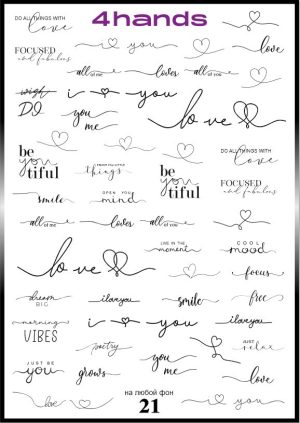 4hands
DO ALL THINGS WITH
love
i you
love
FOCUSED
and fabulous
all of me loves all of me
wish
DO
i you
you
me
love
DO ALL THINGS WITH
love
be
you
tiful
things
be
you
tiful
FOCUSED
and fabulous
smile
OPEN YOU
mind
all of me loves all of me
LIVE IN THE
moment
COOL
mood
love
focus
dream
BIG
i love you
smile
free
morning
VIBES
i you
i love you
poetry
you
me
JUST
relax
JUST BE
you
grows
love
love
you
на любой фон
21